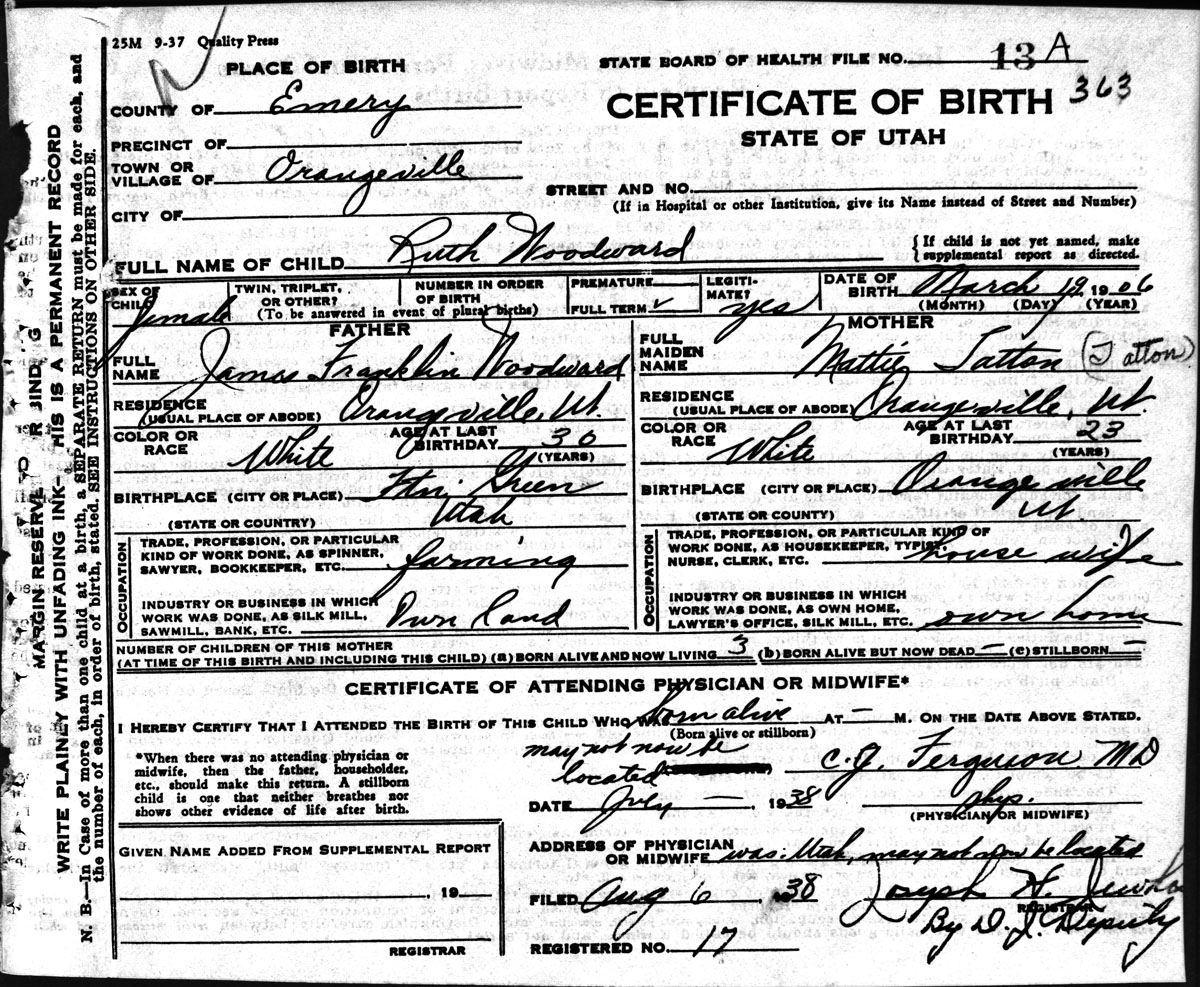 25M 9-37 Quality Press
PLACE OF BIRTH
STATE BOARD OF HEALTH FILE NO. 13 A
363
COUNTY OF Emery
CERTIFICATE OF BIRTH
STATE OF UTAH
PRECINCT OF
TOWN OR
VILLAGE OF Orangeville
STREET AND NO.
(If in Hospital or other Institution, give its Name instead of Street and Number)
CITY OF
FULL NAME OF CHILD Ruth Woodward
{If child is not yet named, make
supplemental report as directed.
SEX OF
CHILD female
TWIN, TRIPLET,
OR OTHER?
NUMBER IN ORDER
OF BIRTH
(To be answered in event of plural births)
PREMATURE
FULL TERM ✓
LEGITI-
MATE? yes
DATE OF
BIRTH March 19, 1906
(MONTH) (DAY) (YEAR)
FATHER
FULL
NAME James Franklin Woodward
RESIDENCE
(USUAL PLACE OF ABODE) Orangeville, Ut.
COLOR OR
RACE White
AGE AT LAST
BIRTHDAY 30
(YEARS)
BIRTHPLACE (CITY OR PLACE) Green
(STATE OR COUNTRY) Utah
OCCUPATION
TRADE, PROFESSION, OR PARTICULAR
KIND OF WORK DONE, AS SPINNER,
SAWYER, BOOKKEEPER, ETC. farming
INDUSTRY OR BUSINESS IN WHICH
WORK WAS DONE, AS SILK MILL,
SAWMILL, BANK, ETC. Own land
MOTHER
FULL
MAIDEN
NAME Mattie Tatton (Tatton)
RESIDENCE
(USUAL PLACE OF ABODE) Orangeville, Ut.
COLOR OR
RACE White
AGE AT LAST
BIRTHDAY 23
(YEARS)
BIRTHPLACE (CITY OR PLACE) Orangeville
(STATE OR COUNTY) Ut.
OCCUPATION
TRADE, PROFESSION, OR PARTICULAR KIND OF
WORK DONE, AS HOUSEKEEPER, TYPIST,
NURSE, CLERK, ETC. house wife
INDUSTRY OR BUSINESS IN WHICH
WORK WAS DONE, AS OWN HOME,
LAWYER'S OFFICE, SILK MILL, ETC. own home
NUMBER OF CHILDREN OF THIS MOTHER
(AT TIME OF THIS BIRTH AND INCLUDING THIS CHILD) (a) BORN ALIVE AND NOW LIVING 3 (b) BORN ALIVE BUT NOW DEAD — (c) STILLBORN —
CERTIFICATE OF ATTENDING PHYSICIAN OR MIDWIFE*
I HEREBY CERTIFY THAT I ATTENDED THE BIRTH OF THIS CHILD WHO WAS born alive AT — M. ON THE DATE ABOVE STATED.
(Born alive or stillborn)
*When there was no attending physician or
midwife, then the father, householder,
etc., should make this return. A stillborn
child is one that neither breathes nor
shows other evidence of life after birth.
may not now be
located
C.J. Ferguson MD
DATE July — 1938
phys.
(PHYSICIAN OR MIDWIFE)
GIVEN NAME ADDED FROM SUPPLEMENTAL REPORT
, 19
REGISTRAR
ADDRESS OF PHYSICIAN
OR MIDWIFE was: Utah, may not now be located
FILED Aug 6 38
Joseph H.
REGISTRAR
By D. J. Deputy
REGISTERED NO. 17
MARGIN RESERVE
WRITE PLAINLY WITH UNFADING INK—THIS IS A PERMANENT RECORD
N. B.—In Case of more than one child at a birth, a SEPARATE RETURN must be made for each, and
the number of each, in order of birth, stated. SEE INSTRUCTIONS ON OTHER SIDE.